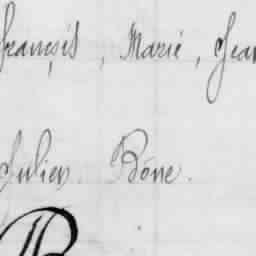 François, Marie, Jean
Julien Bône.